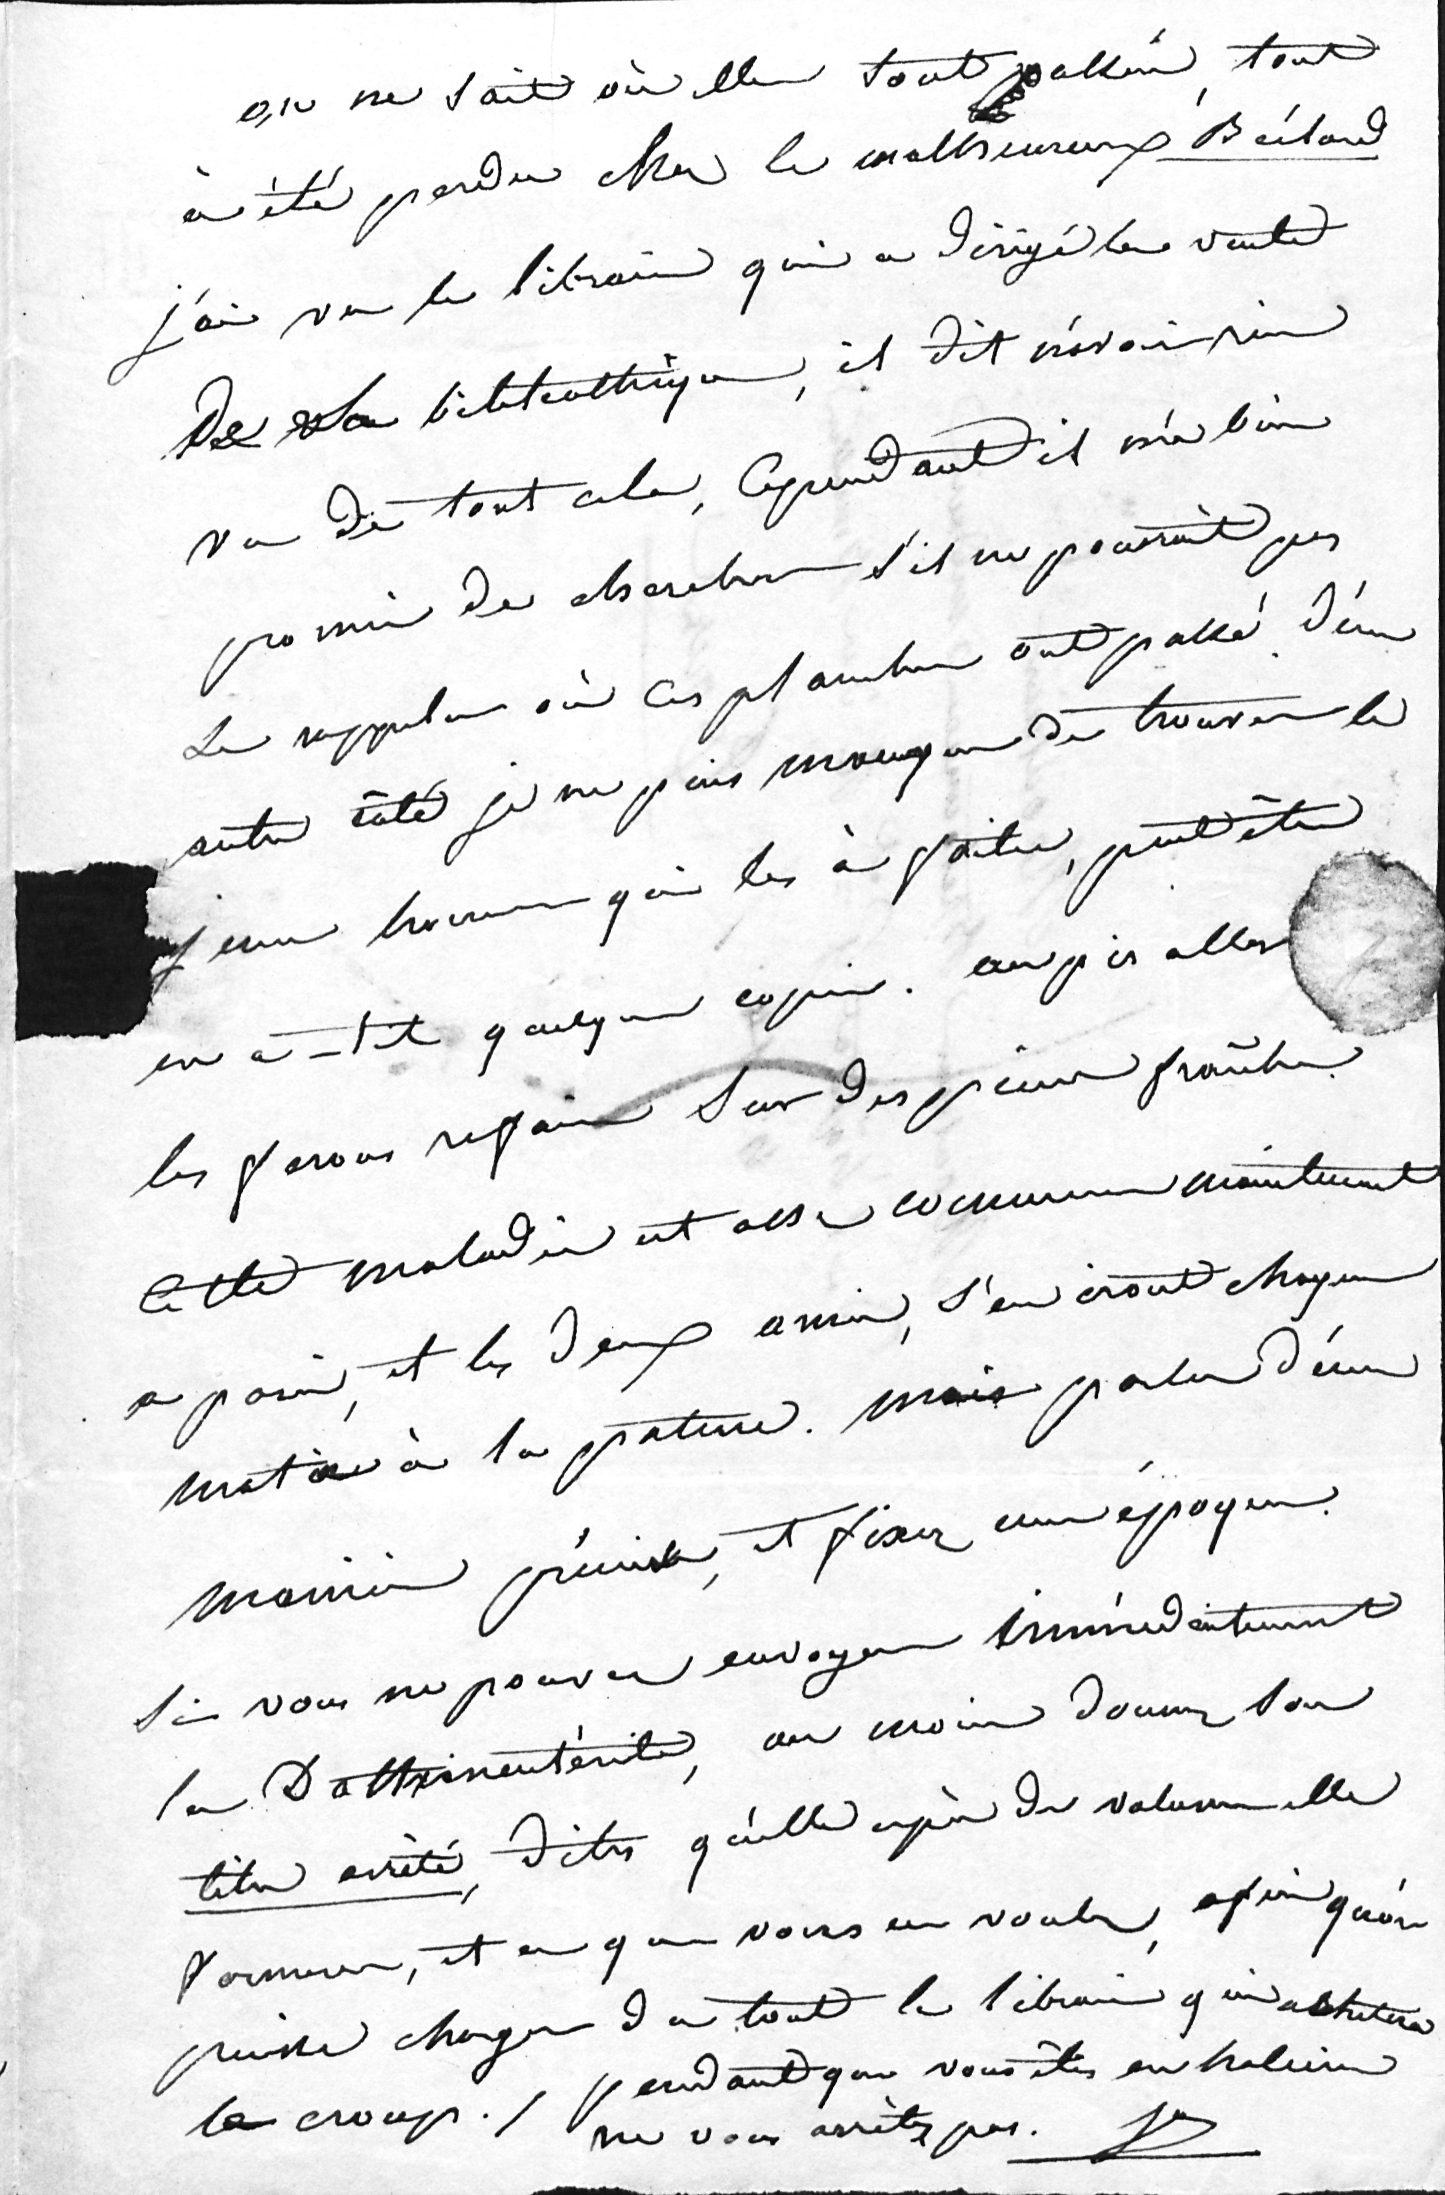 on ne sait où elles sont passées, tout
à été perdu chez le malheureux Béclard
j'ai vu le libraire qui a dirigé la vente
De sa bibliothèque, il dit n'avoir rien
vu de tout cela, Cependant il m'a bien
promis de chercher s'il ne pourrait pas
se rappeler où ces planches ont passé. D'un
autre côté je ne puis manquer de trouver le
jeune homme qui les à faites, peut être
en a-t-il quelque copie. au pis aller
les ferons refaire sur des pièces fraîches.
Cette maladie est assez commune maintenant
a paris, et les deux amis, s'en iront chaque
matin à la pature. mais parlez d'une
manière précise, et fixez une époque.
Si vous ne pouvez envoyer immédiatement
la Dothinentérite, au moins donnez son
titre arrêté, dites qu'elle espèce de volume elle
formera, et ce que vous en voulez, afin qu'on
puisse charger du tout le libraire qui achetera
le croup. / pendant que vous êtes en haleine
ne vous arrêtez pas.